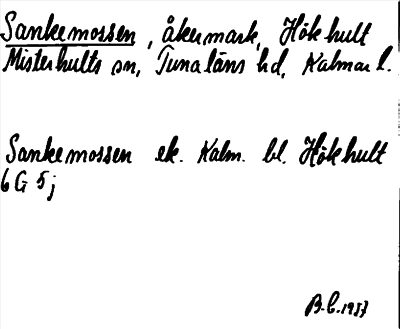 Sankemossen, åkermark, Hökhult
Misterhults sn, Tunaläns hd, Kalmar l.
Sankemossen ek. Kalm. bl. Hökhult
6 G 5 j
B.C. 1937